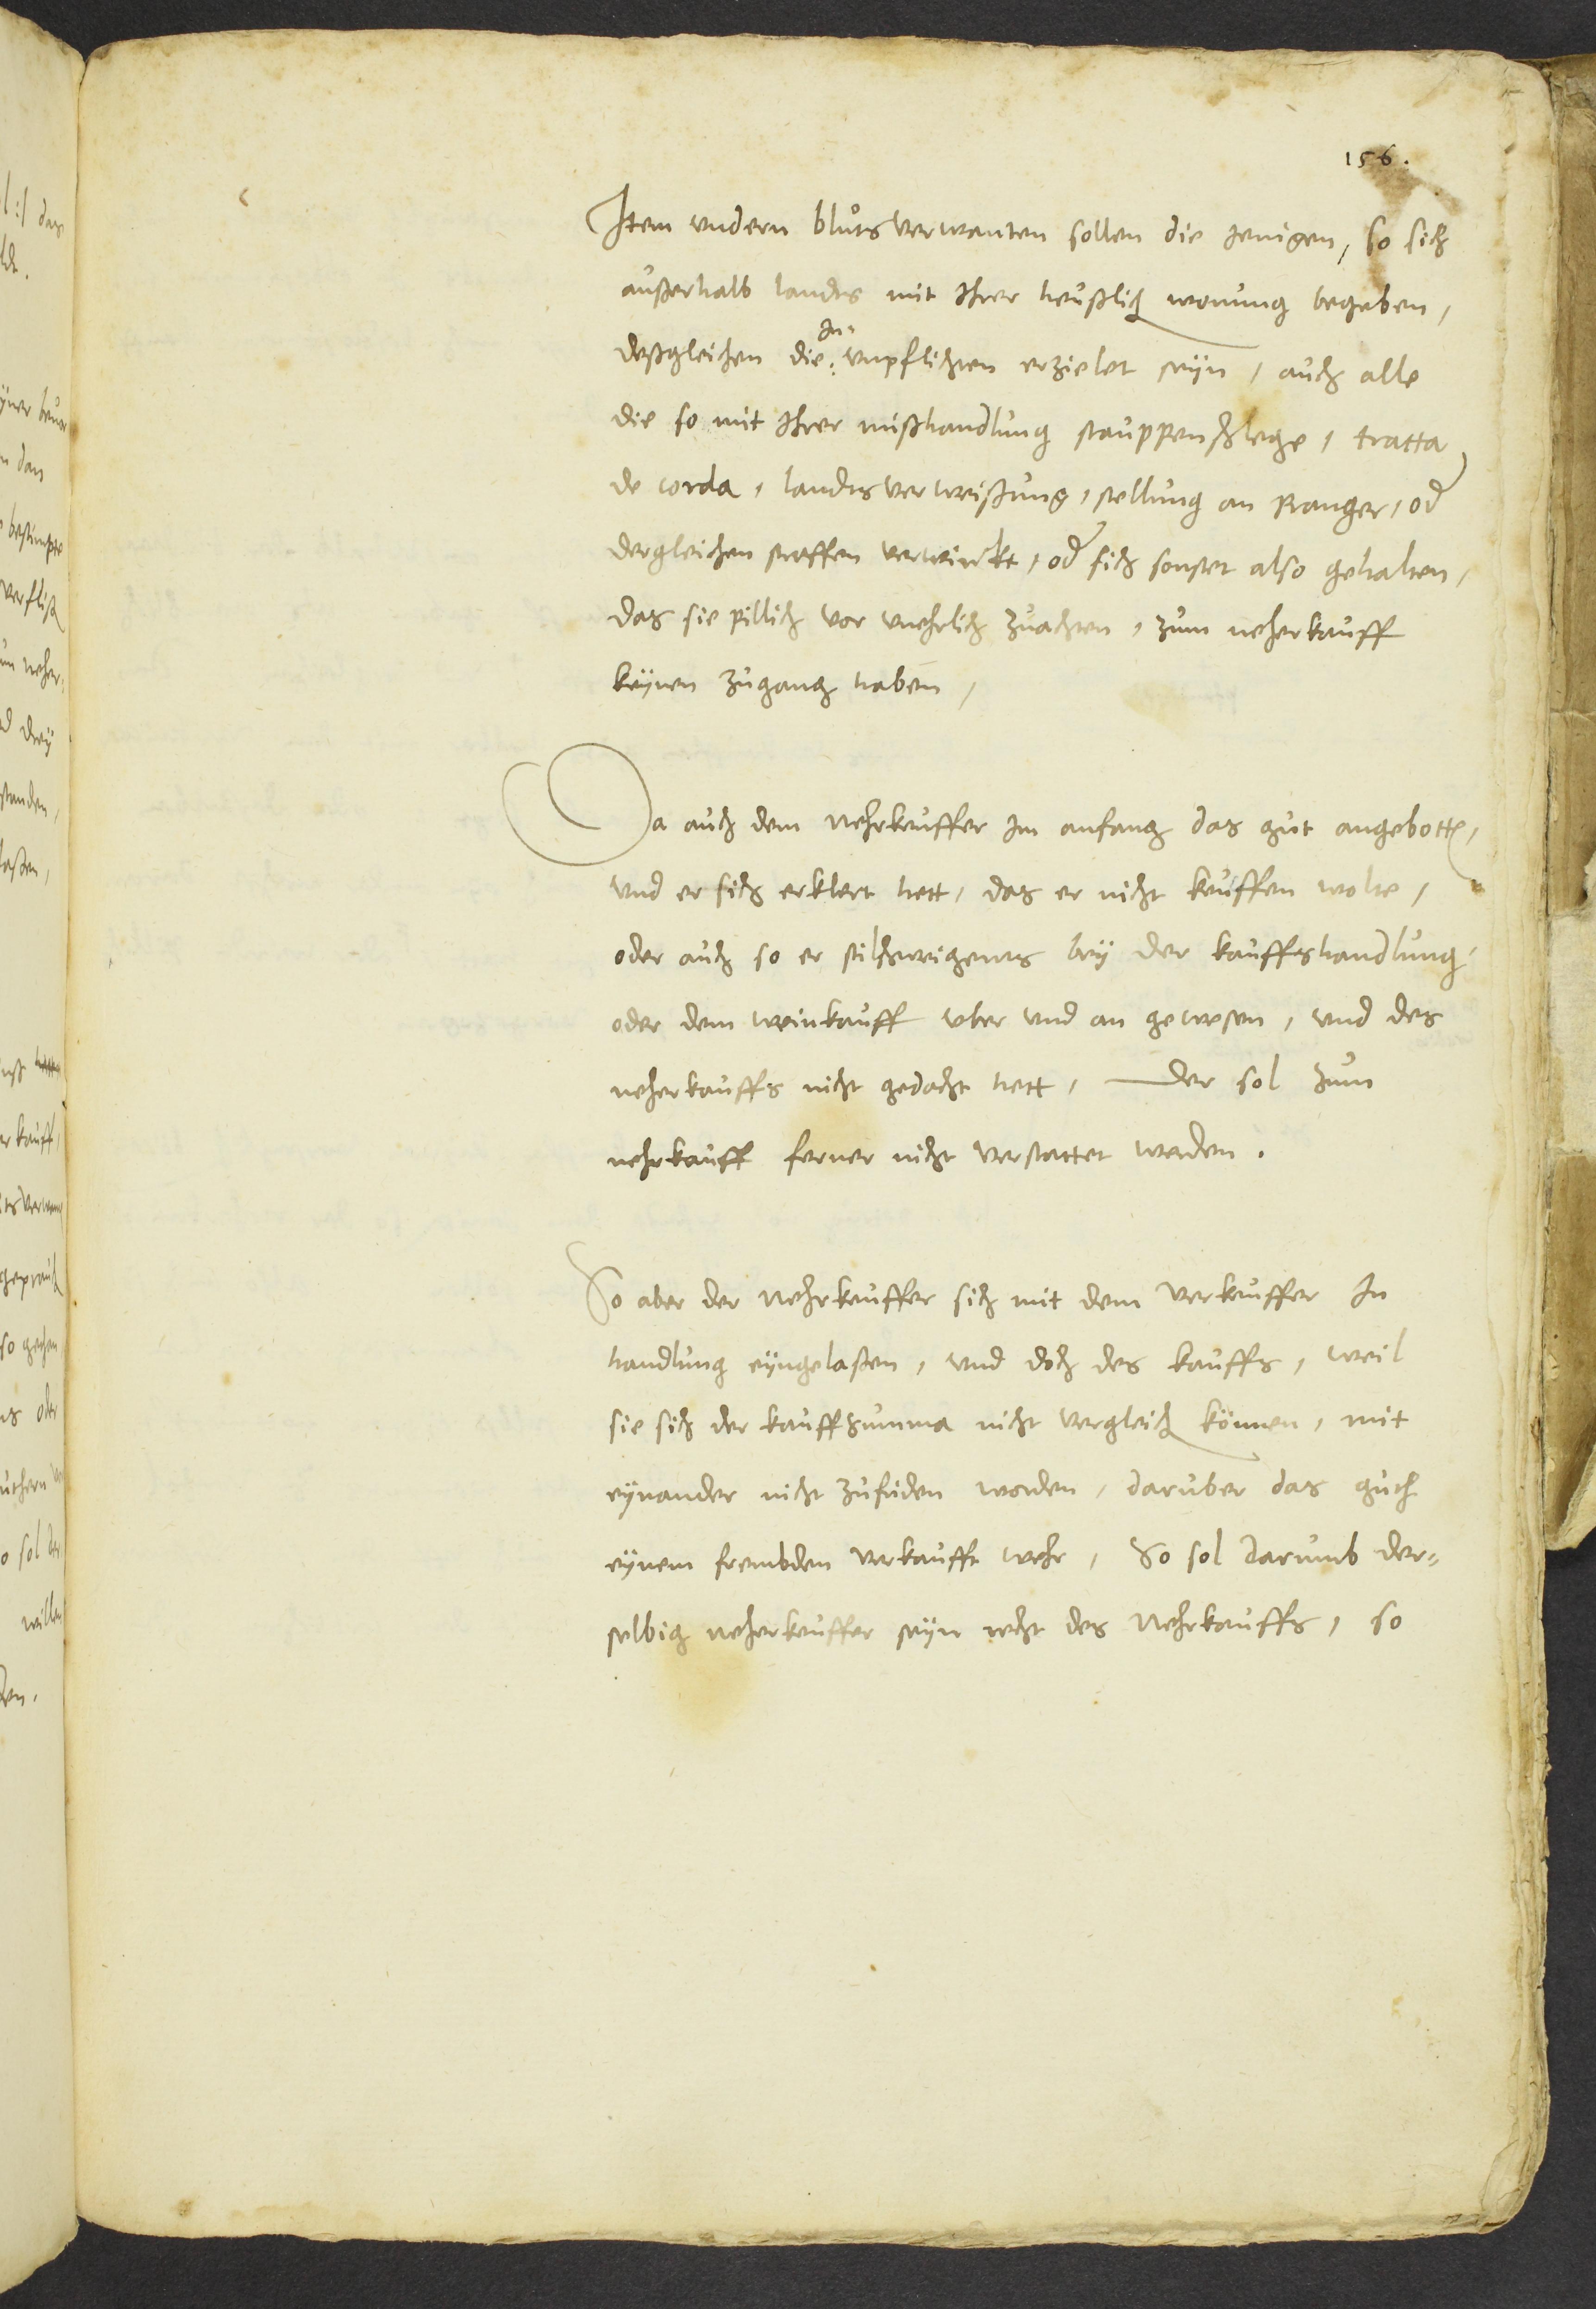 156.
Item vndern blůtsverwanten sollen die Jenigen, so sich
außerhalb landts mit Ihrer heußlich wonung begeben,
deßgleichen die In vnpflichten erzielet seÿn, auch alle
die so mit Ihrer mißhandlung stauppenschlege, tratta
de corda, landtsverweißung, stellung an Pranger, od
dergleichen straffen verwirckt, od sich sonstet also gehalten,
das sie pillich vor vnehrlich zuachten, zum neherkauff
keÿnen zugang haben,
Da auch dem Nehrkeuffer Im anfang das gut angebotten,
vnd er sich erklert hett, das er nicht keuffen wolte,
oder auch so er stilschweigents beÿ der kauffshandlung,
oder dem weinkauff vber vnd an gewesen, vnd des
neherkauffs nicht gedacht hett, der sol zum
nehrkauff ferner nicht verstattet werden.
So aber der Nehrkeuffer sich mit dem verkeuffer In
handlung eÿngelaßen, vnd doch des kauffs, weil
sie sich der kauffsumma nicht vergleich können, mit
eÿnander nicht zufriden worden, daruber das guth
eÿnem frembden verkaufft wehr, So sol darumb der=
selbig neherkeuffer seÿn recht des Nehrkauffs, so